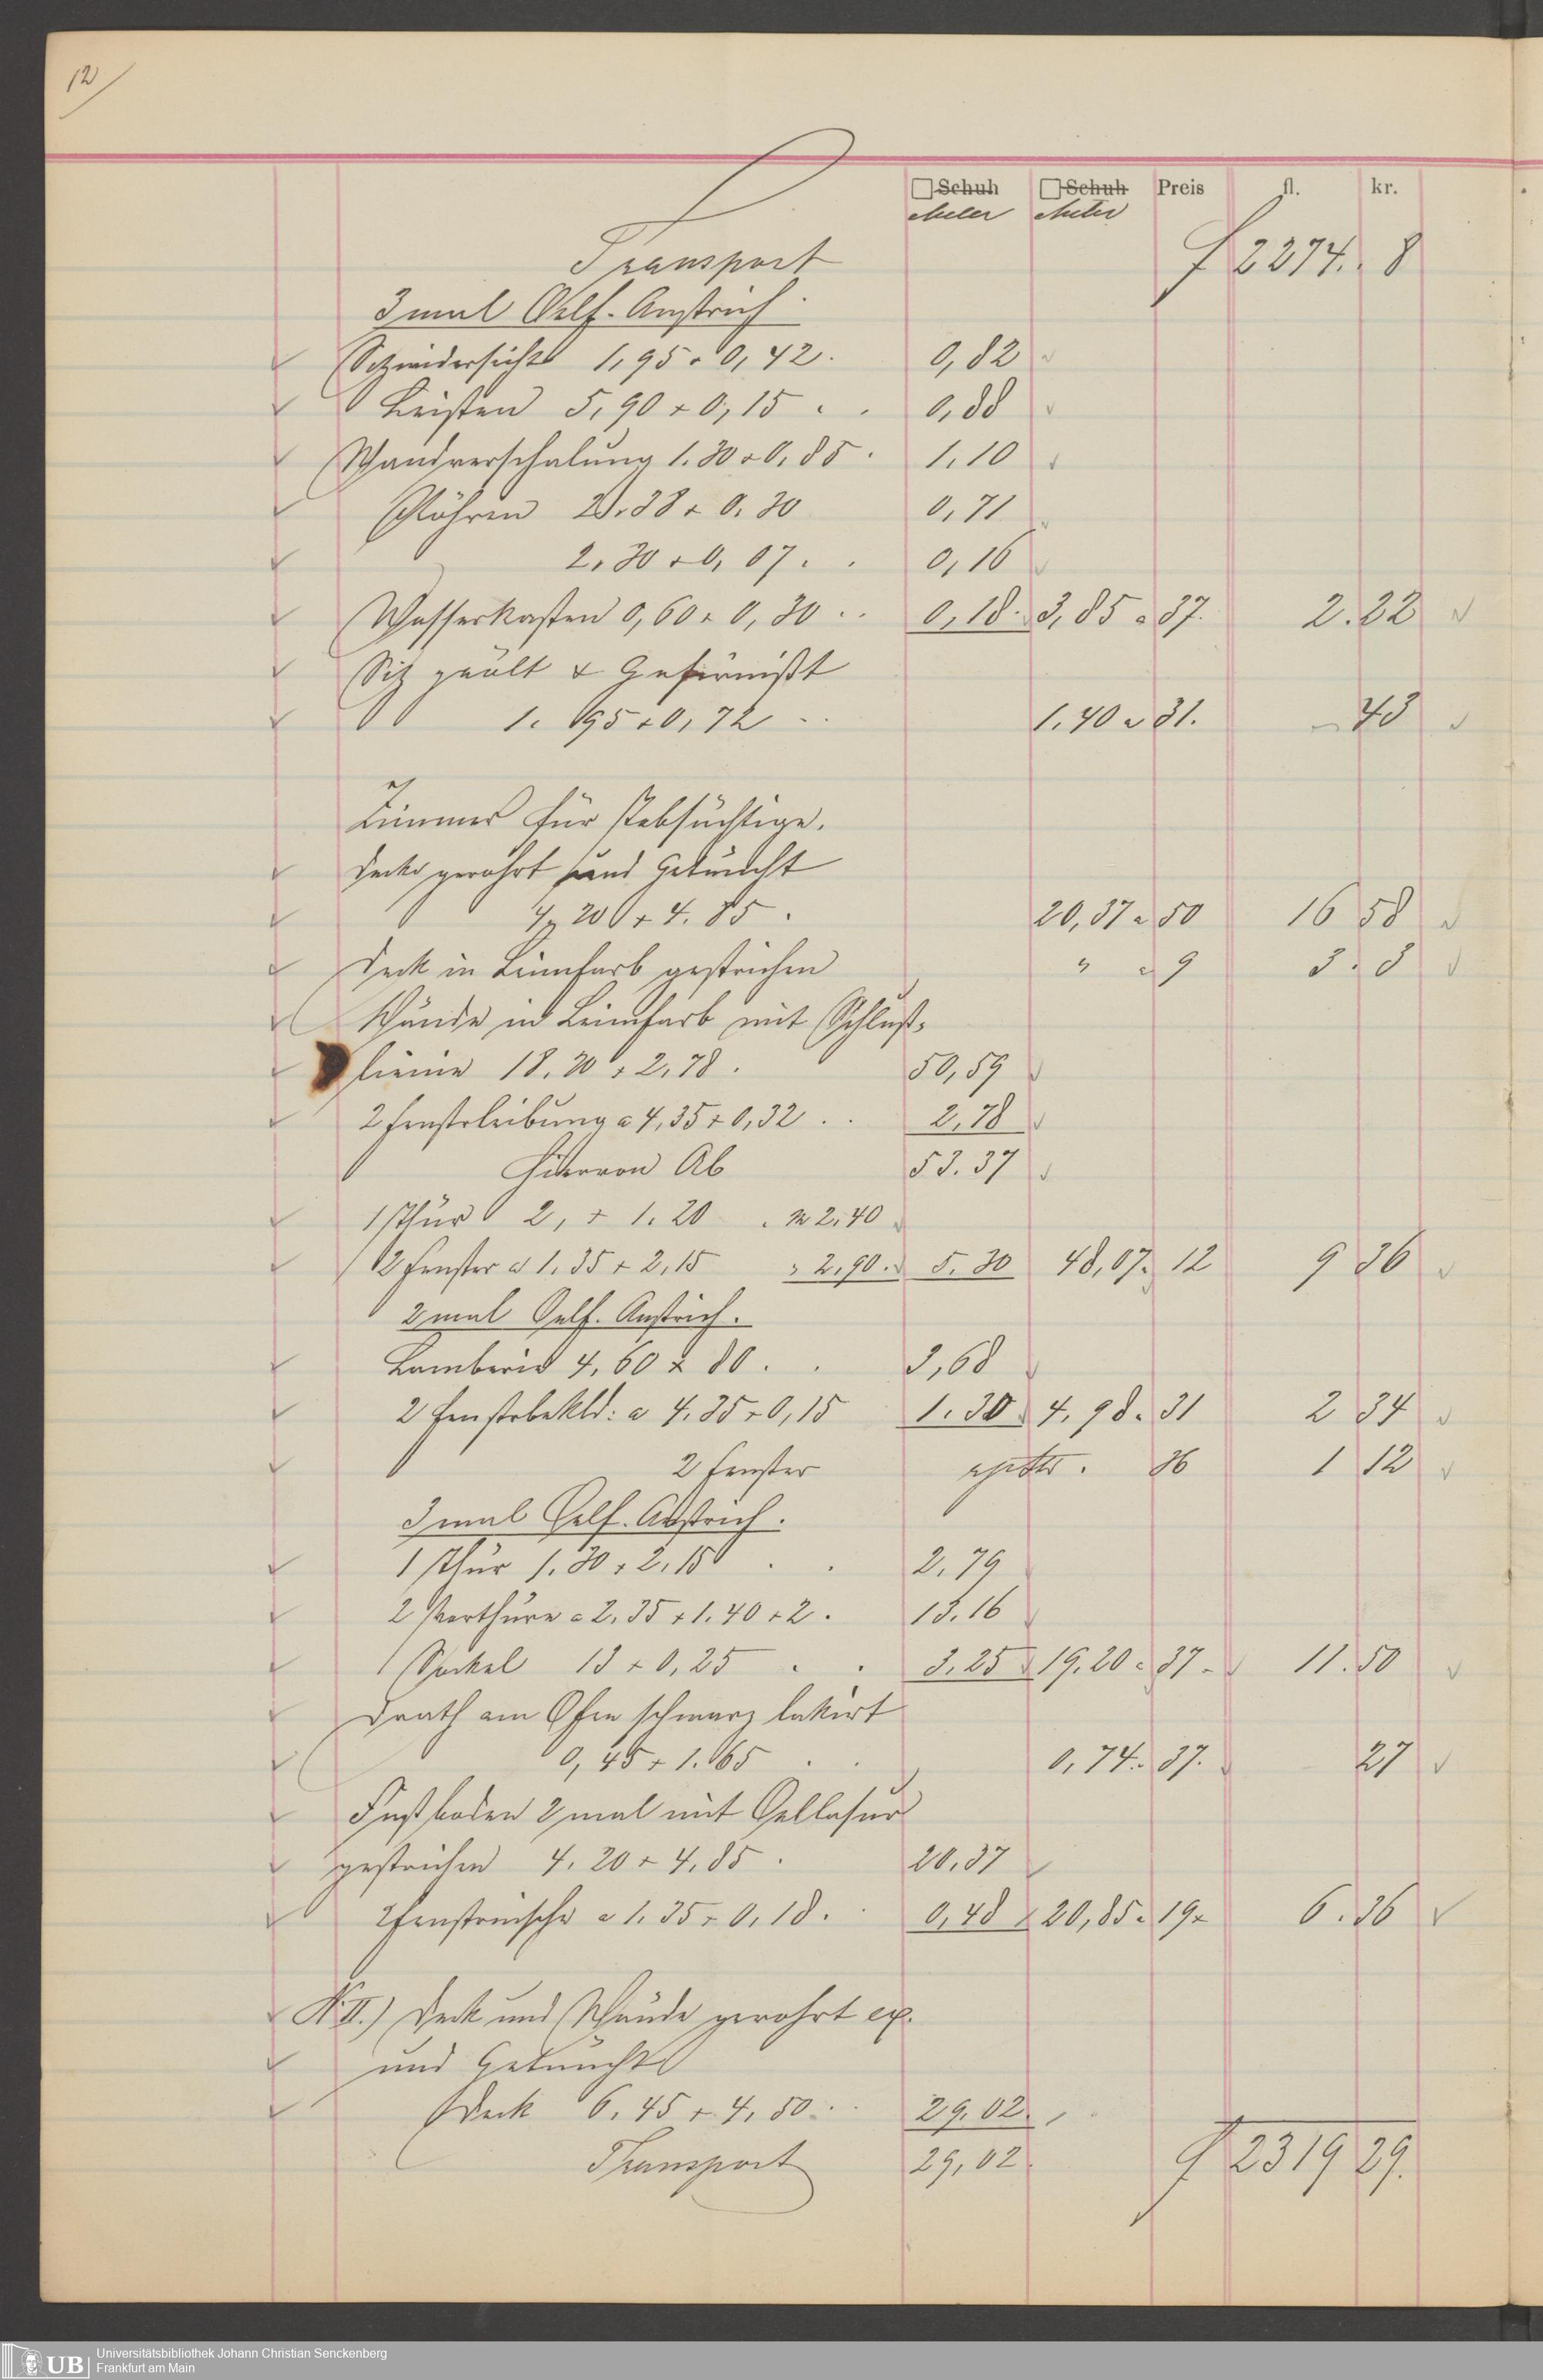 12
□Schuh □Schuh Preis fl. kr.
Meter Meter
Transport f 2274. 8
3 mal Oelf. Anstrich.
1,95 + 0,42. 0,82
Leisten 5,90 + 0,15 . . 0,88
Wandverschalung 1.30 + 0,85 . 1.10
Röhren 2.38 + 0.30 0,71
2,30 + 0,07 . . 0,16
Wasserkasten 0,60 + 0,30 . . 0,18. 3,85 a 37. 2.22
Sitz geölt & Gefirnißt
1. 95 + 0,72 . . 1.40 a 31. – 43
Zimmer für Tobsüchtige.
Decke gerohrt und Getüncht
4,20 + 4.85 . 20,37 a 50 16 58
Deck in Leimfarb gestrichen " a 9 3.3
Wände in Leimfarb mit Schluß-
linien 18.20 + 2,78 . 50,59
2 Fensterleibung a 4,35 + 0,32 . . 2,78
Hiervon Ab 53.37
1 Thür 2, + 1.20 . m 2.40
2 Fenster a 1.35 + 2,15 " 2.90. 5.30 48,07 a 12 9 36
2 mal Oelf. Anstrich.
Lamberie 4,60 + 80 . . 3,68
2 Fensterbekld: a 4.35 + 0,15 1.30 4.98 a 31 2 34
2 Fenster 36 1 12
3 mal Oelf. Anstrich.
1 Thür 1.30 + 2.15 . . 2.79
2 Vorthüre a 2.35 + 1.40 + 2 . 13.16
1 Sockel 13 + 0,25 . . 3.25 19.20 a 37 – 11.50
Drath am Ofen schwarz lakirt
0,45 + 1.65 . . 0,74. 37. 27
Fußboden 2 mal mit Oellasur
gestrichen 4.20 + 4,85 . 20,37
2 Fensternische a 1.35 + 0,18 . . 0,48 20,85 a 19 6.36
N: II.) Deck und Wände gerohrt
und Getüncht
Deck 6.45 + 4,50 . . 29.02.
Transport 29,02 f 2319 29.
UB Universitätsbibliothek Johann Christian Senckenberg
Frankfurt am Main